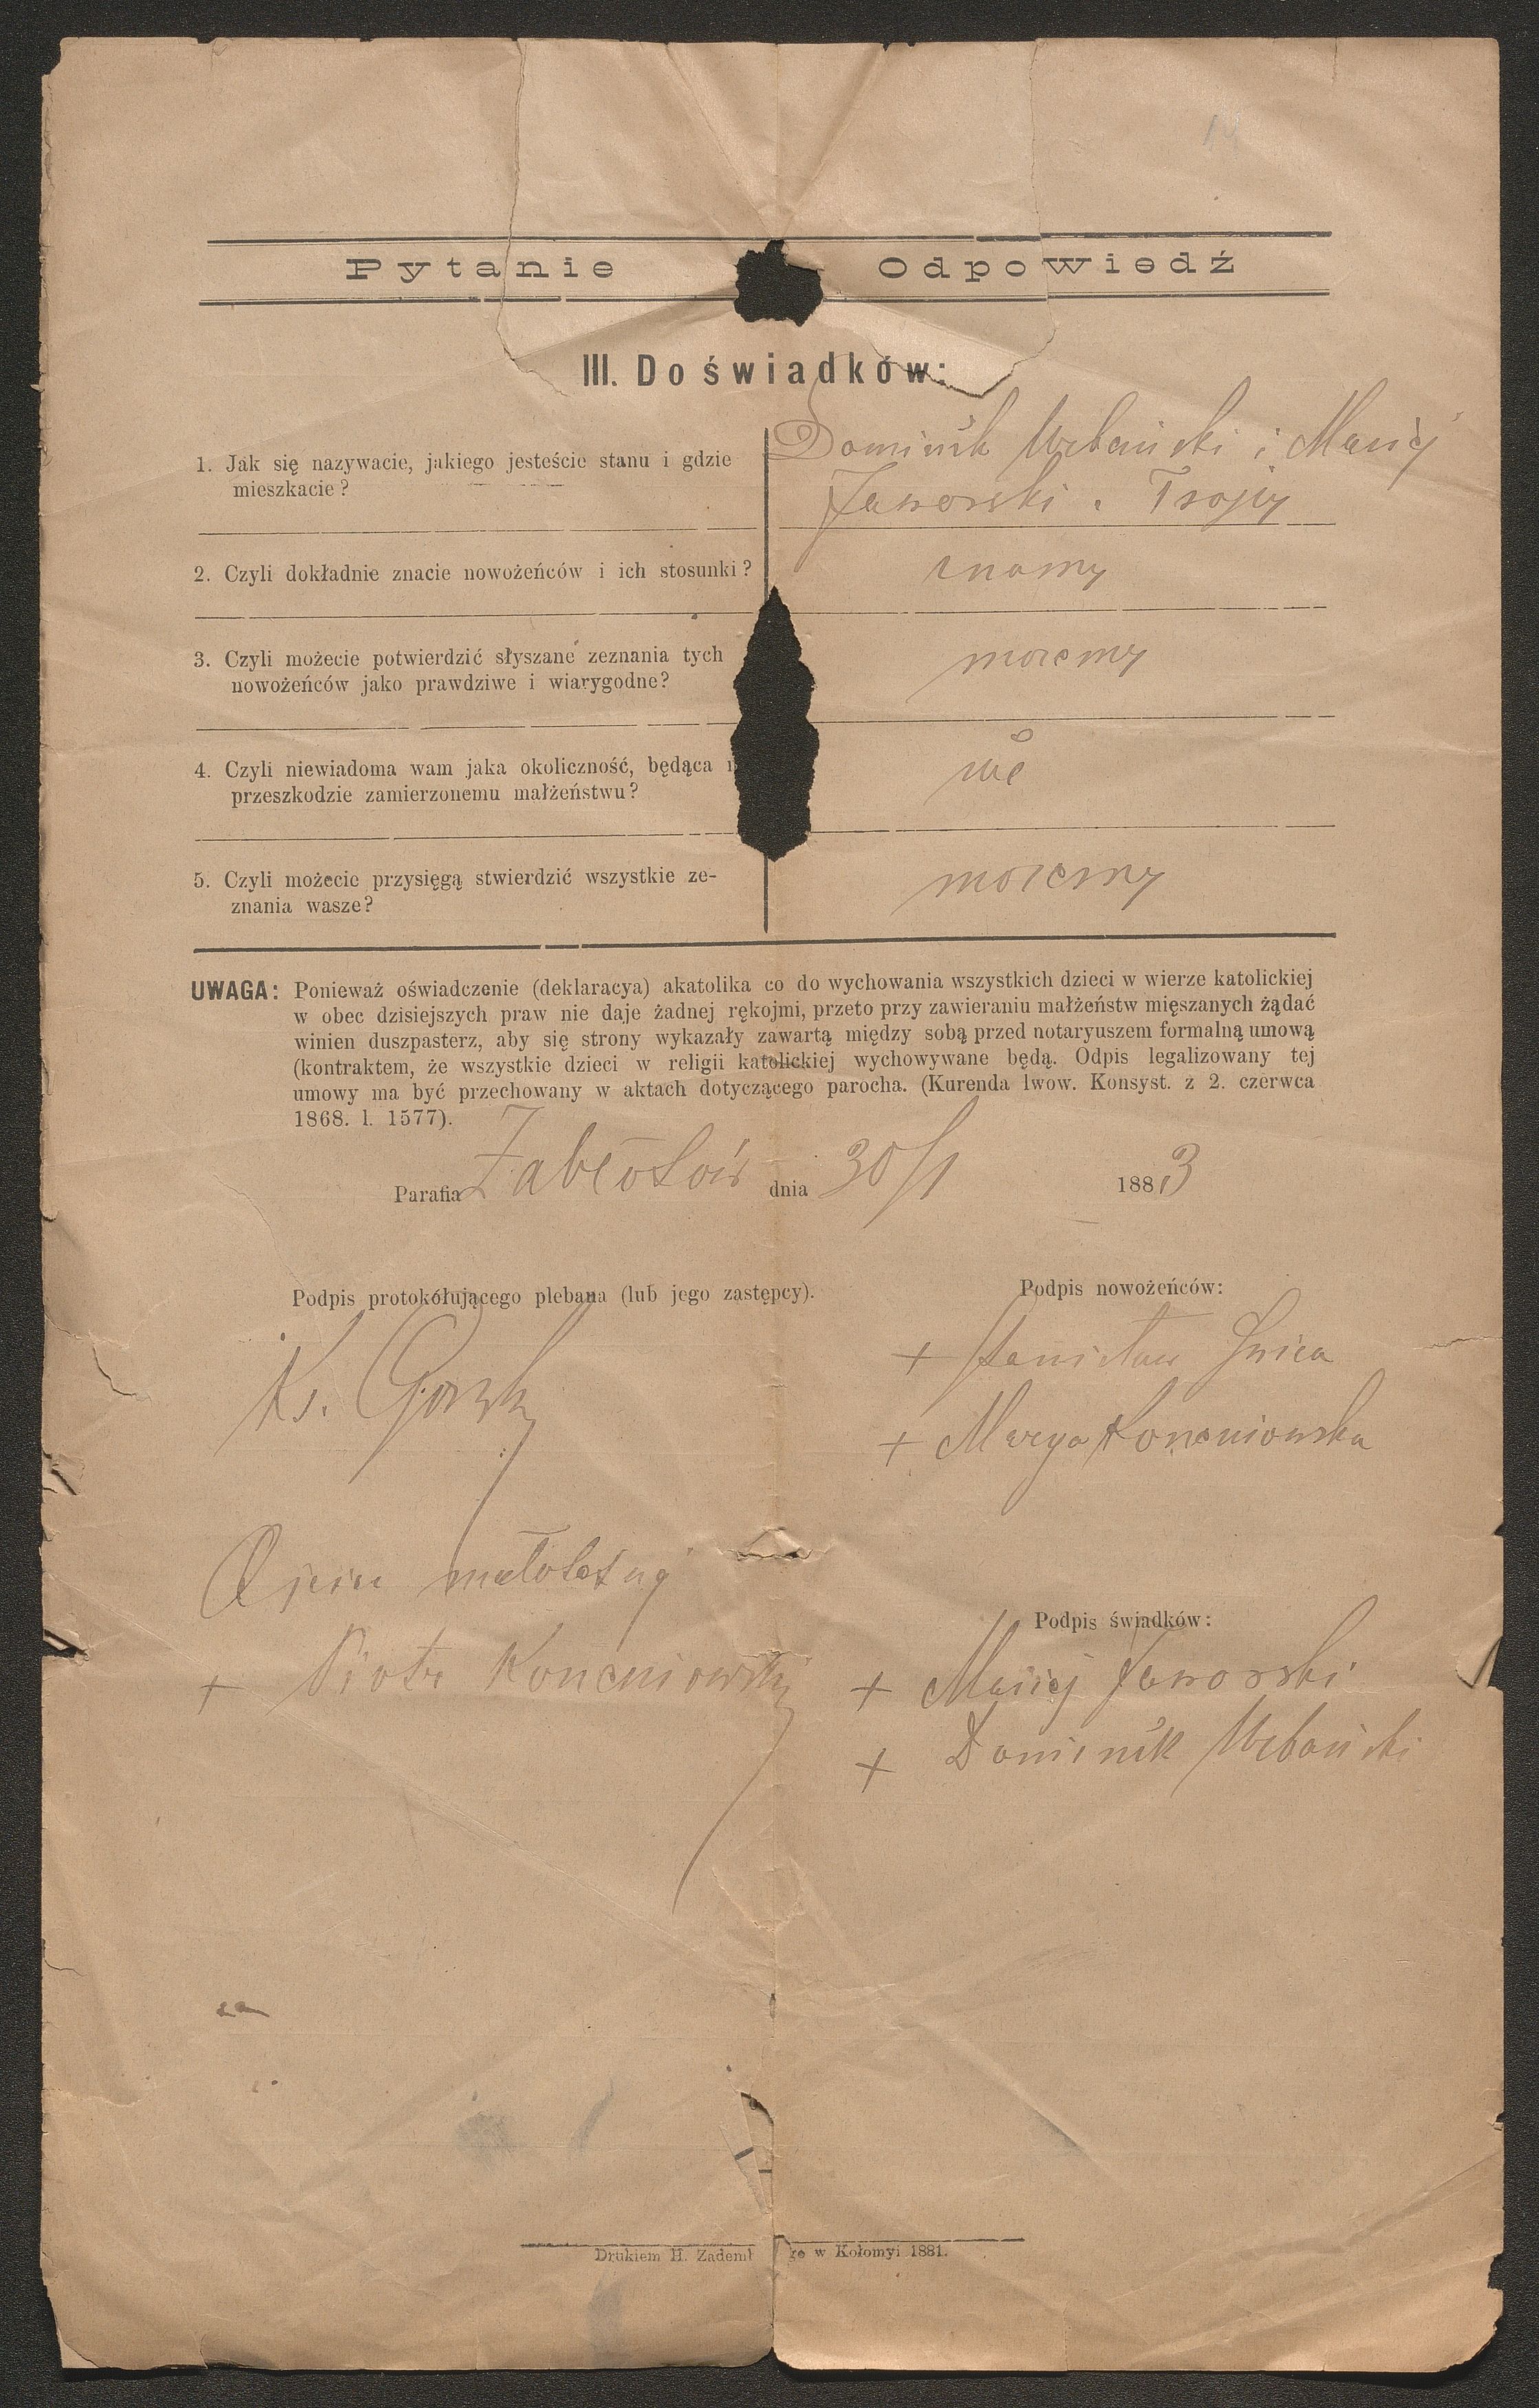 14
Pytanie Odpowiedź
III. Do świadków:
1. Jak się nazywacie, jakiego jesteście stanu i gdzie
mieszkacie?
Dominik Urbański i Maciej
Jaworski z Trójcy
2. Czyli dokładnie znacie nowożeńców i ich stosunki?
znamy
3. Czyli możecie potwierdzić słyszane zeznania tych
nowożeńców jako prawdziwe i wiarygodne?
możemy
4. Czyli niewiadoma wam jaka okoliczność, będąca
przeszkodzie zamierzonemu małżeństwu?
nie
5. Czyli możecie przysięgą stwierdzić wszystkie ze-
znania wasze?
możemy
UWAGA: Ponieważ oświadczenie (deklaracya) akatolika co do wychowania wszystkich dzieci w wierze katolickiej
w obec dzisiejszych praw nie daje żadnej rękojmi, przeto przy zawieraniu małżeństw mięszanych żądać
winien duszpasterz, aby się strony wykazały zawartą między sobą przed notaryuszem formalną umową
(kontraktem, że wszystkie dzieci w religii katolickiej wychowywane będą. Odpis legalizowany tej
umowy ma być przechowany w aktach dotyczącego parocha. (Kurenda lwow. Konsyst. z 2. czerwca
1868. l. 1577).
Parafia Zabłotów dnia 30/1 1883
Podpis protokółującego plebana (lub jego zastępcy).
Podpis nowożeńców:
Ks.
+ Stanisław
+ Marya Koncniowska
Ojciec małoletniej
+ Piotr Koncniowski
Podpis świadków:
+ Maciej Jaworski
+ Dominik Urbański
Drukiem H. Zademb w Kołomyi 1881.